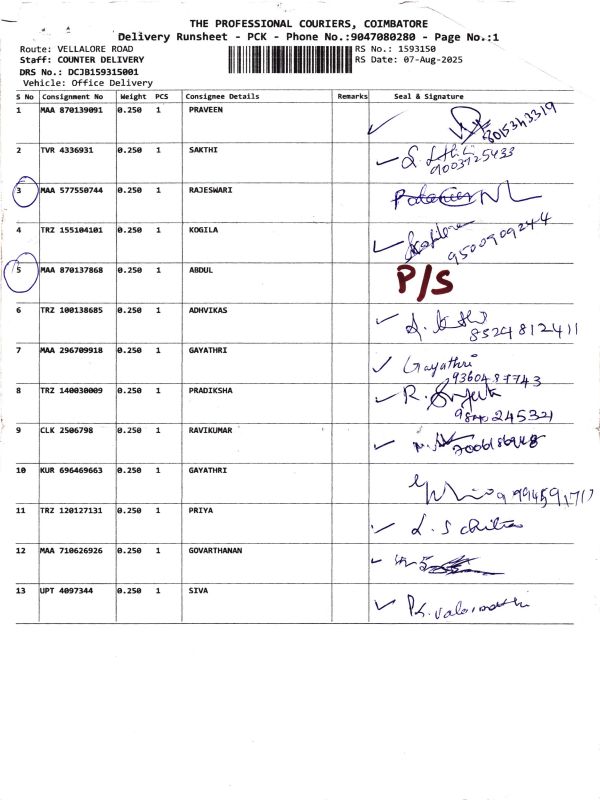 THE PROFESSIONAL COURIERS, COIMBATORE
Delivery Runsheet - PCK - Phone No.:9047080280 - Page No.:1
Route: VELLALORE ROAD RS No.: 1593150
Staff: COUNTER DELIVERY RS Date: 07-Aug-2025
DRS No.: DCJB159315001
Vehicle: Office Delivery
S No Consignment No Weight PCS Consignee Details Remarks Seal & Signature
1 MAA 870139091 0.250 1 PRAVEEN 8015343319
2 TVR 4336931 0.250 1 SAKTHI
9003725433
3 MAA 577550744 0.250 1 RAJESWARI
4 TRZ 155104101 0.250 1 KOGILA
9500909244
5 MAA 870137868 0.250 1 ABDUL P/S
6 TRZ 100138685 0.250 1 ADHVIKAS
8524812411
7 MAA 296709918 0.250 1 GAYATHRI Gayathri
9360487743
8 TRZ 140030009 0.250 1 PRADIKSHA
9 CLK 2506798 0.250 1 RAVIKUMAR
10 KUR 696469663 0.250 1 GAYATHRI
11 TRZ 120127131 0.250 1 PRIYA
12 MAA 710626926 0.250 1 GOVARTHANAN
13 UPT 4097344 0.250 1 SIVA